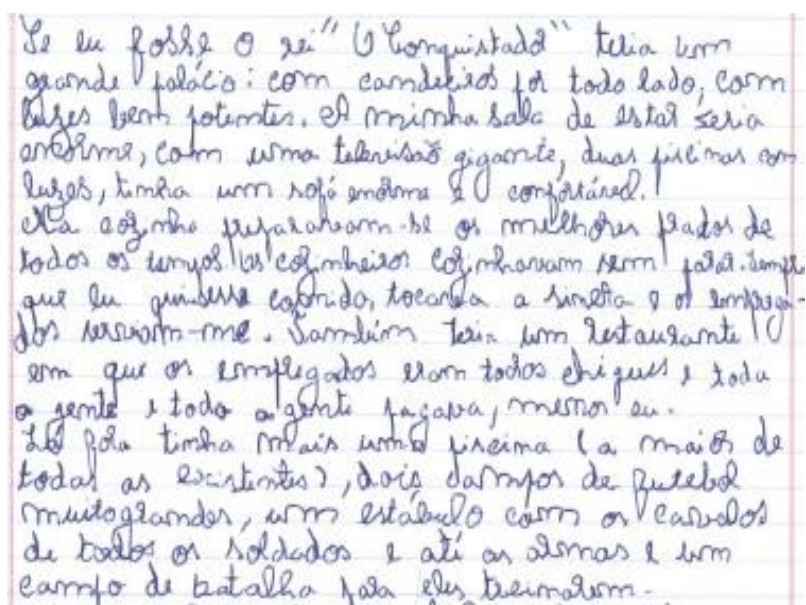 Se eu fosse o rei "O Conquistado" teria um
grande palácio: com candeeiros por todo lado, com
luzes bem potentes. A minha sala de estar seria
enorme, com uma televisão gigante, duas piscinas com
luzes, tinha um sofá enorme e confortável.
Na cozinha preparavam-se os melhores prados de
todos os tempos os cozinheiros cozinhavam sem parar. Sempre
que eu quisesse comida, tocava a sineta e os emprega-
dos serviam-me. Também teria um restaurante
em que os empregados eram todos chiques e toda
a gente e toda a gente pagava, menos eu.
Lá fora tinha mais uma piscina (a maior de
todas as existentes), dois campos de futebol
muitograndes, um estábulo com os cavalos
de todos os soldados e até as armas e um
campo de batalha para eles treinarem.